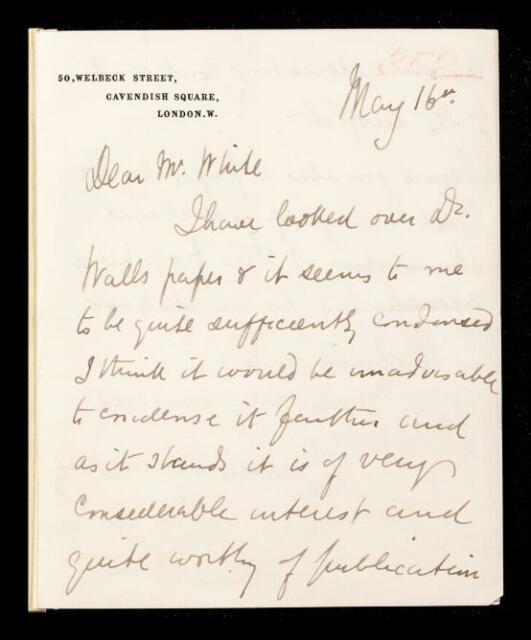 50, WELBECK STREET,
CAVENDISH SQUARE,
LONDON. W.
352
May 16th
Dear Mr. White
I have looked over Dr.
Walls paper & it seems to me
to be quite sufficiently condensed
I think it would be inadvisable
to condense it further and
as it stands it is of very
considerable interest and
quite worthy of publication